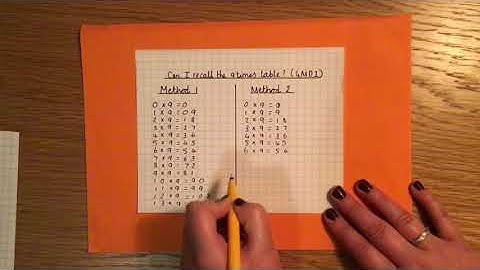 Can I recall the 9 times table? (4MD1)
Method 1
0 x 9 = 0
1 x 9 = 09
2 x 9 = 18
3 x 9 = 27
4 x 9 = 36
5 x 9 = 45
6 x 9 = 54
7 x 9 = 63
8 x 9 = 72
9 x 9 = 81
10 x 9 = 90
11 x 9 = 99
12 x 9 = 10
Method 2
0 x 9 = 0
1 x 9 = 9
2 x 9 = 18
3 x 9 = 27
4 x 9 = 36
5 x 9 = 45
6 x 9 = 54